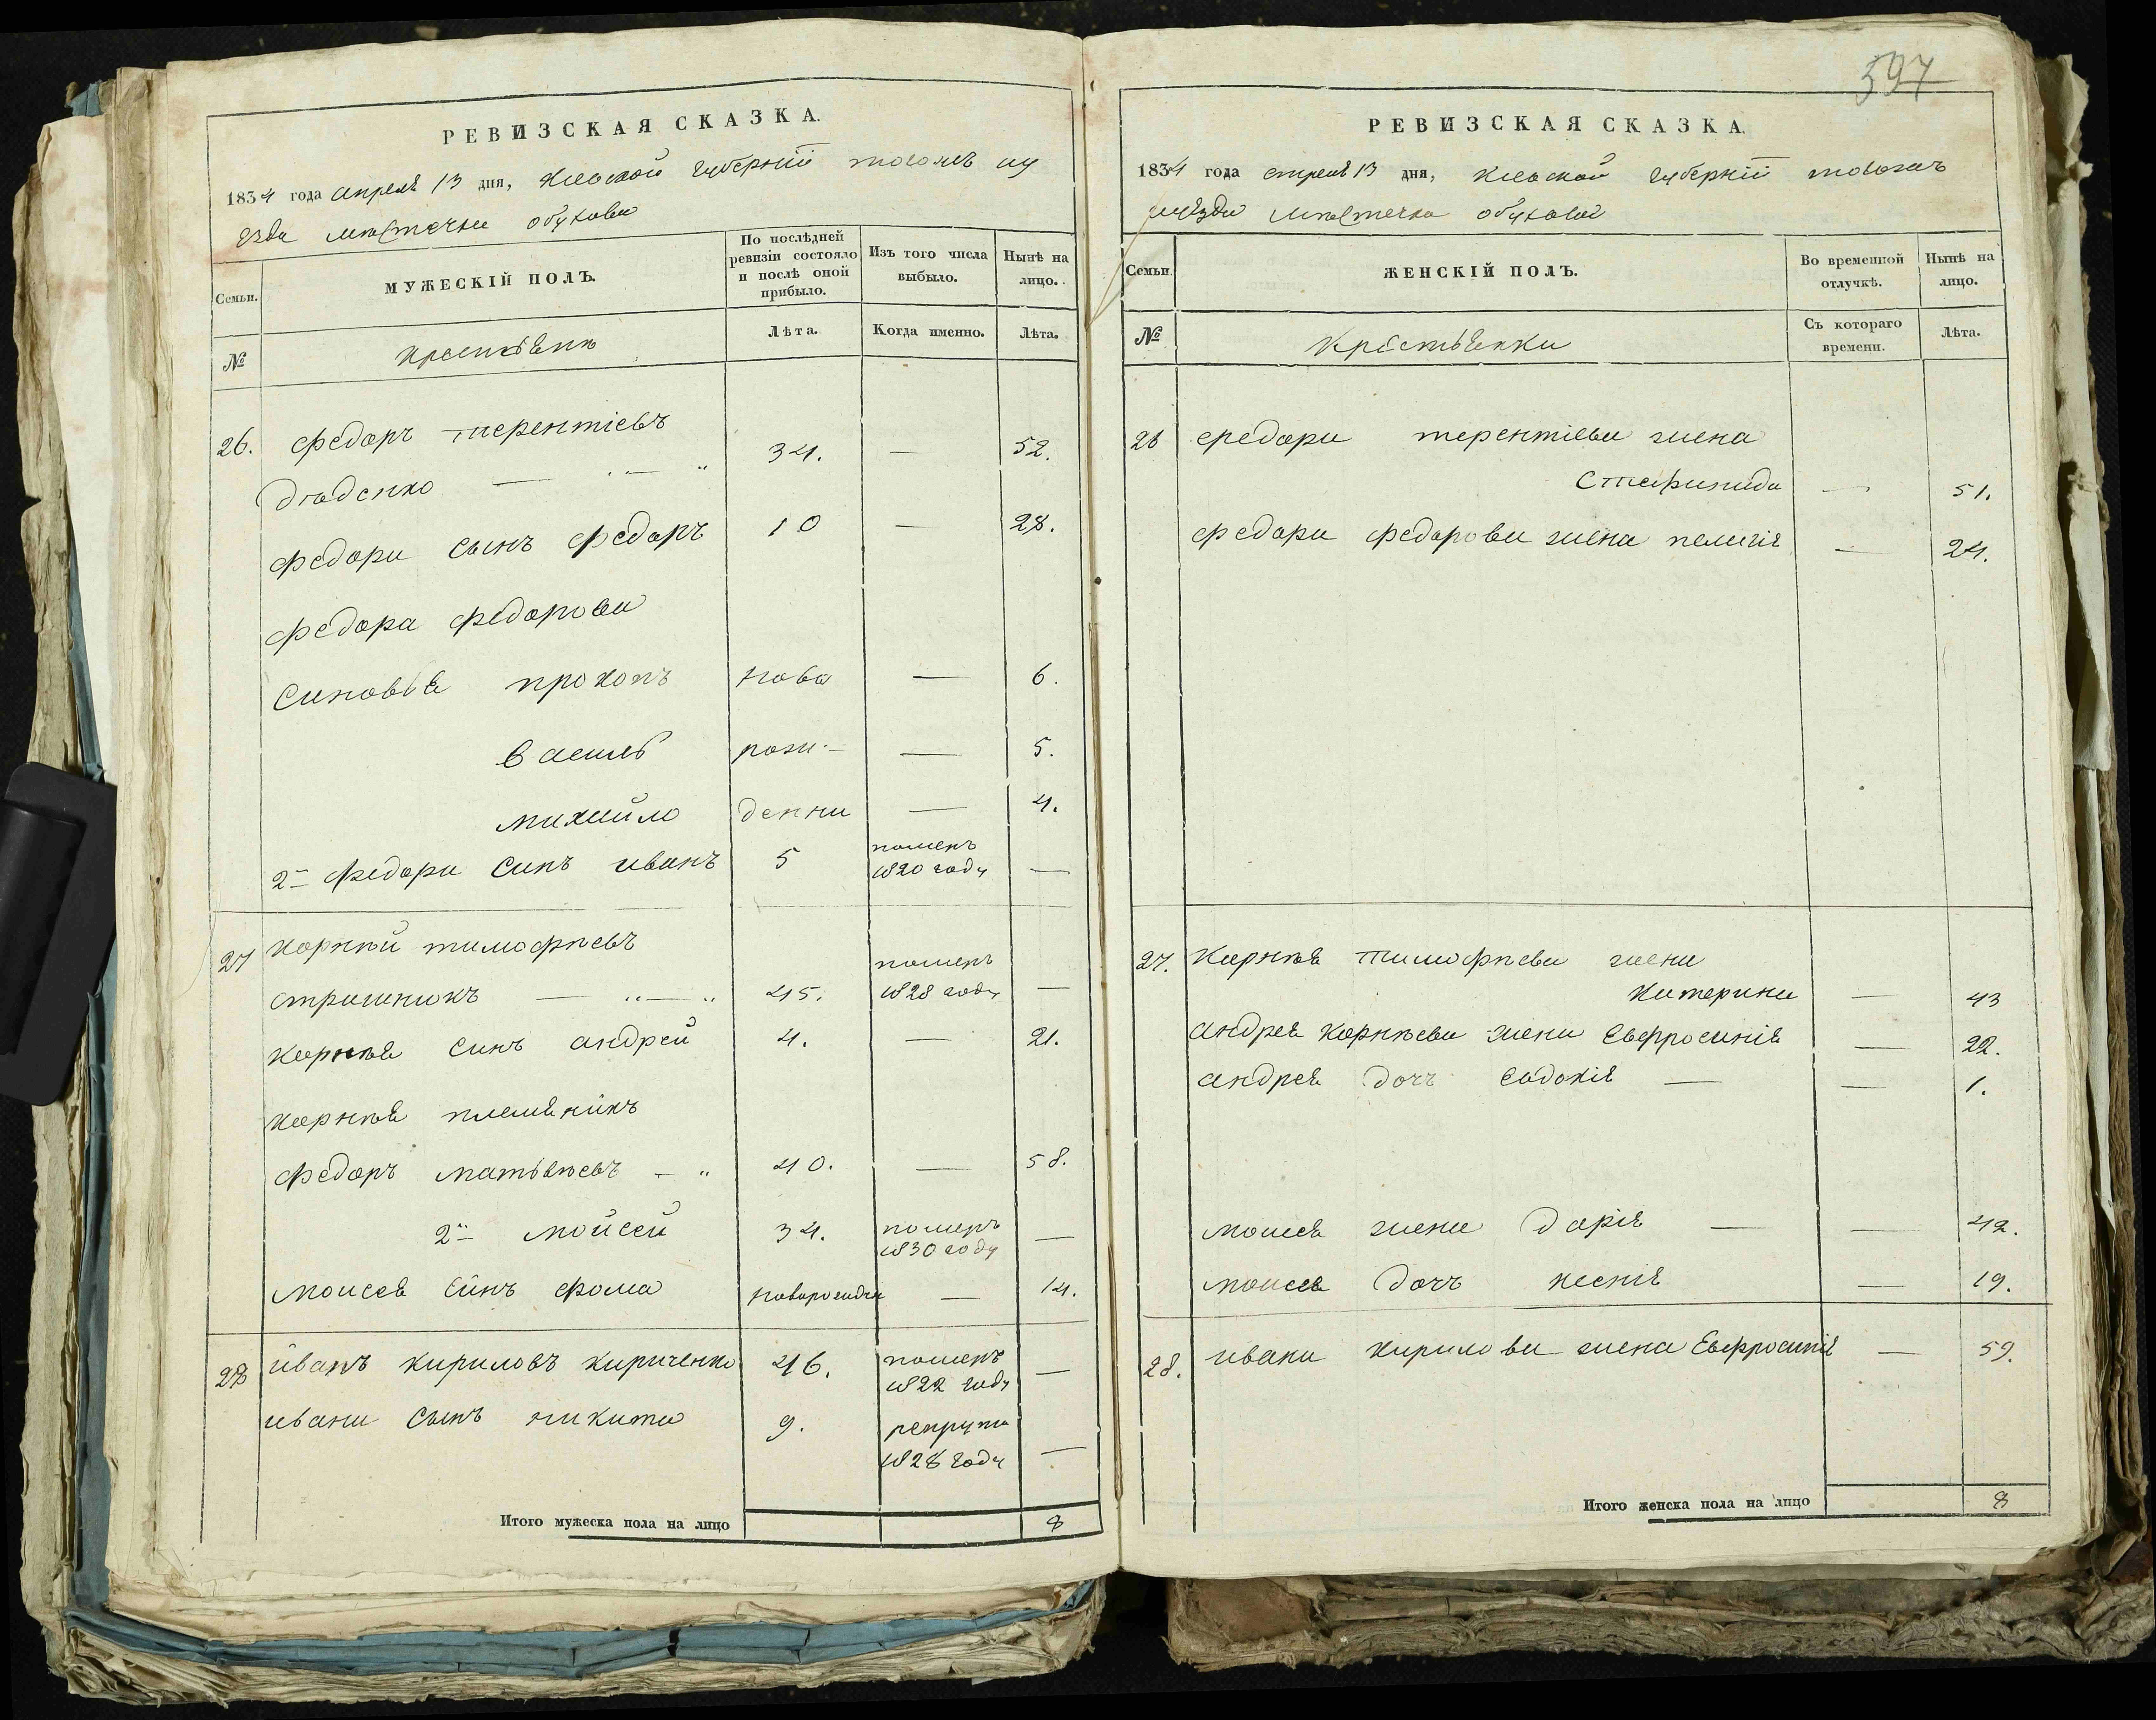 РЕВИЗСКАЯ СКАЗКА.
1834 года апреля 13 дня, Киевской губернiи того жъ уу
езда местечка обухова
Семьи.
МУЖЕСКІЙ ПОЛЪ.
По послѣдней ревизіи состояло и послѣ оной прибыло.
Изъ того числа выбыло.
Ныне на лицо.
№
крестьяне
Лѣта.
Когда именно.
Лѣта.
26. федоръ терентiевъ
дяденко — 34. — 52.
федора сынъ федоръ 10 — 28.
федора федорова
синовья прокопъ ново — 6.
василь рож- — 5.
михайло денни — 4.
2й федора синъ иванъ 5 померъ 1820 году —
27 корнѣй тимофѣевъ
стришнюкъ — 45. померъ 1828 году —
корнѣя синъ андрей 4. — 21.
корнѣя племяникъ
федоръ матвѣевъ 40. — 58.
2й мойсей 34. померъ 1830 году —
моисея синъ фома новорожден — 14.
28 иванъ кириловъ кириченко 46. померъ 1822 году —
ивана сынъ никита 9. рекрутъ 1828 году —
Итого мужеска пола на лицо 8
597
РЕВИЗСКАЯ СКАЗКА.
1834 года апреля 13 дня, Киевской губернiи того жъ
уезда местечка обухова
Семьи.
ЖЕНСКІЙ ПОЛЪ.
Во временной отлучкѣ.
Нынѣ на лицо.
№
Крестьянки
Съ котораго времени.
Лѣта.
26 федора терентiева жена
Стефанида — 51.
федора федорова жена пелагiя — 24.
27. Корнѣя тимофѣева жена
Катерина — 43
андрея корнѣева жена Евфросинiя — 22.
андрея дочъ евдокiя — — 1.
моисея жена дарiя — — 42.
моисея дочъ ксенiя — 19.
28. ивана кирилова жена Евфросинiя — 59.
Итого женска пола на лицо 8